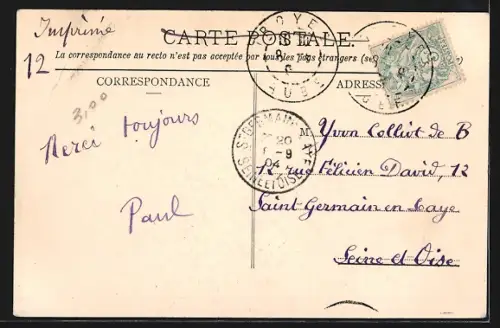 Imprimé
12
CARTE POSTALE.
La correspondance au recto n'est pas acceptée par tous les pays étrangers (se
CORRESPONDANCE
ADRES
3,00
Merci toujours
Paul
AUBE
St GERMAIN
20
-9
04
SEINE ET OISE
M Yvon Colliot de B
12, rue Félicien David, 12
Saint Germain en Laye
Seine et Oise